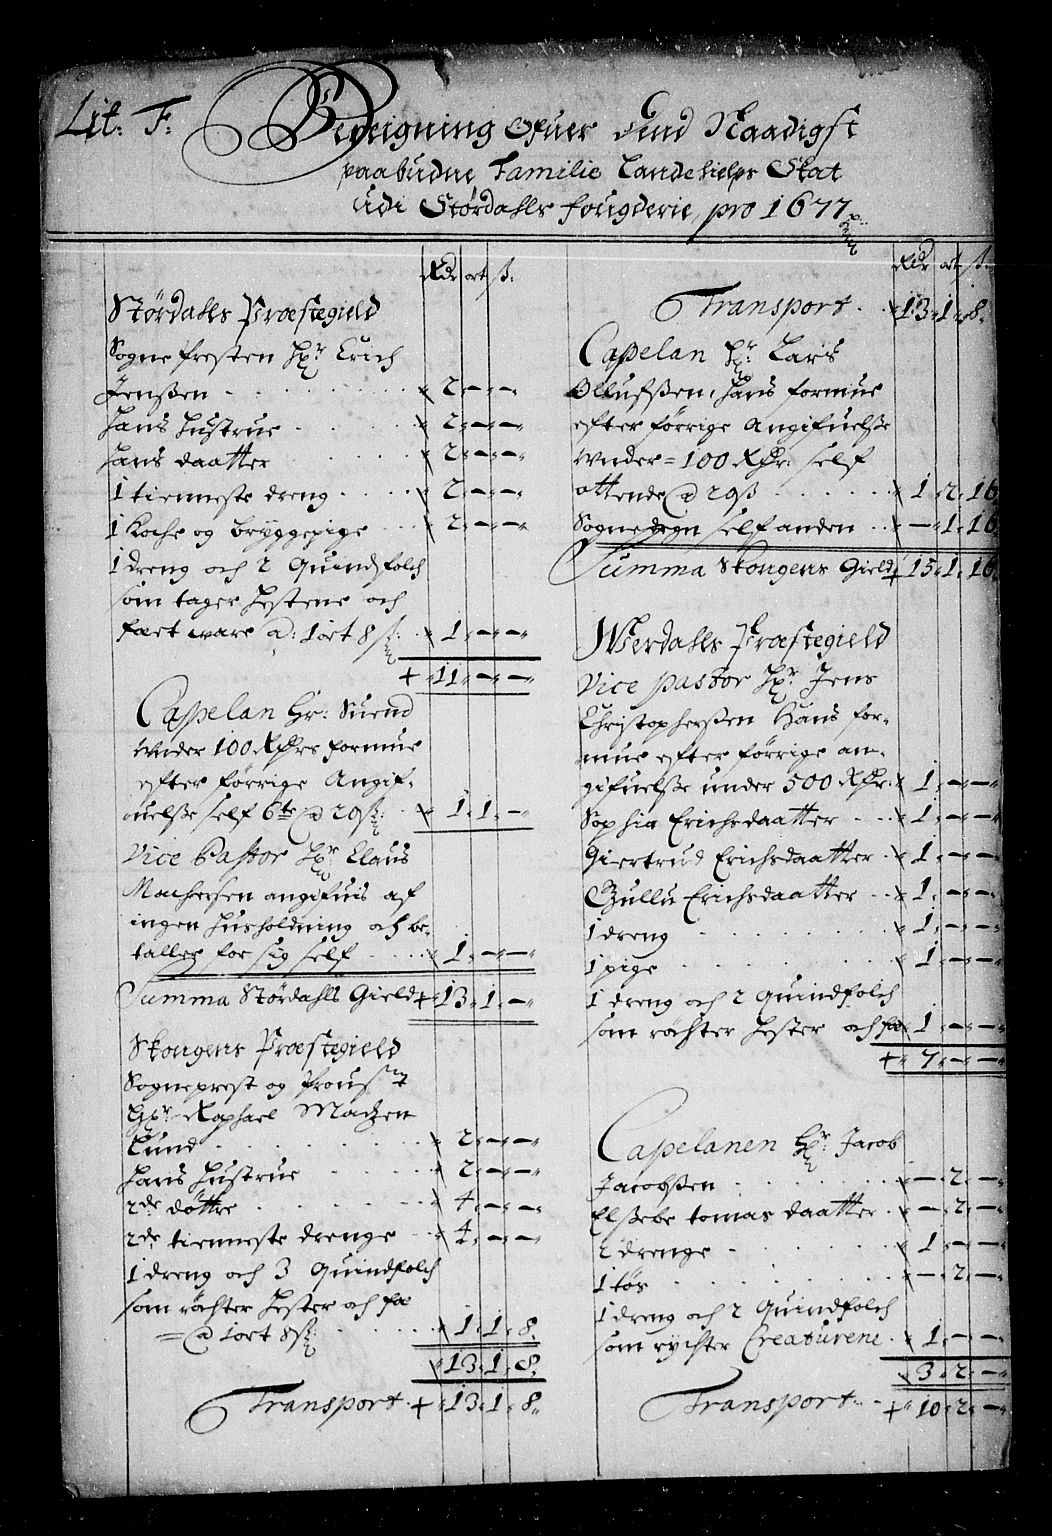 Lit: F:
Bereigning Ofuer dend Naadigst
paabudne Familie Landehielps Skat
udi Størdahls fougderie, pro 1677
Rdr ort ß:
Størdahls Præstegield
Sogne Presten Hr Erich
Jenßen . . . 2 - -
Hans Hustrue . . . 2 - -
Hans daatter . . . 2 - -
1 tienneste dreng . . . 2 - -
1 Koche og Bryggepige . . . 2 - -
1 dreng och 2 Quindfolch
som tager Hestene och
faet ware a: 1 ort 8 ß: 1 - -
+ 11 - -
Capelan Hr: Suend
under 100 Rdrs formue
efter forrige Angif-
uelse self 6te a 20 ß: 1 1 -
Vice Pastor Hr Claus
Machersen angifuis af
ingen Husholdning och be-
taller for sig self . . . 1 - -
Summa Størdahls Gield + 13 1 -
Skougens Præstegield
Sogneprest og Proust
Hr Raphael Madzen
Lund . . . 2 - -
Hans Hustrue . . . 2 - -
2de døttre . . . 4 - -
2de tienneste drenge . . . 4 - -
1 dreng och 3 Quindfolch
som røchter Hester och fæ
= a 1 ort 8 ß: . . . 1 1 8
13 1 8
Transport . + 13 1 8
Rdr ort ß:
Transport . . 13 1 8
Capelan Hr: Lars
Ollufsßen, Hans formue
efter förrige Angifuelse
under = 100 Rdr: self
ottende a 20 ß . . . 1 2 16
Sognedegn self anden . . - 1 16
Summa Skougens Gield + 15 1 16
Werdahls Præstegield
Vice pastor Hr Jens
Christopherßen Hans for-
mue efter förrige an-
gifuelse under 500 Rdr: 1 - -
Sophia Erichsdaatter . . . 1 - -
Giertrud Erichsdaatter . . 1 - -
Gullu Erichsdaatter . . 1 - -
1 dreng . . . 1 - -
1 pige . . . 1 - -
1 dreng och 2 Quindfolch
som røchter Hester och fæ 1 - -
+ 7 - -
Capelanen Hr: Jacob
Jacobßen . . . - 2 -
Elßebe tomas daatter . . - 2 -
2 drenge . . . 1 - -
1 tös . . . - 2 -
1 dreng och 2 Quindfolch
som rychter Creaturene . 1 - -
3 2 -
Transport . . + 10 2 -